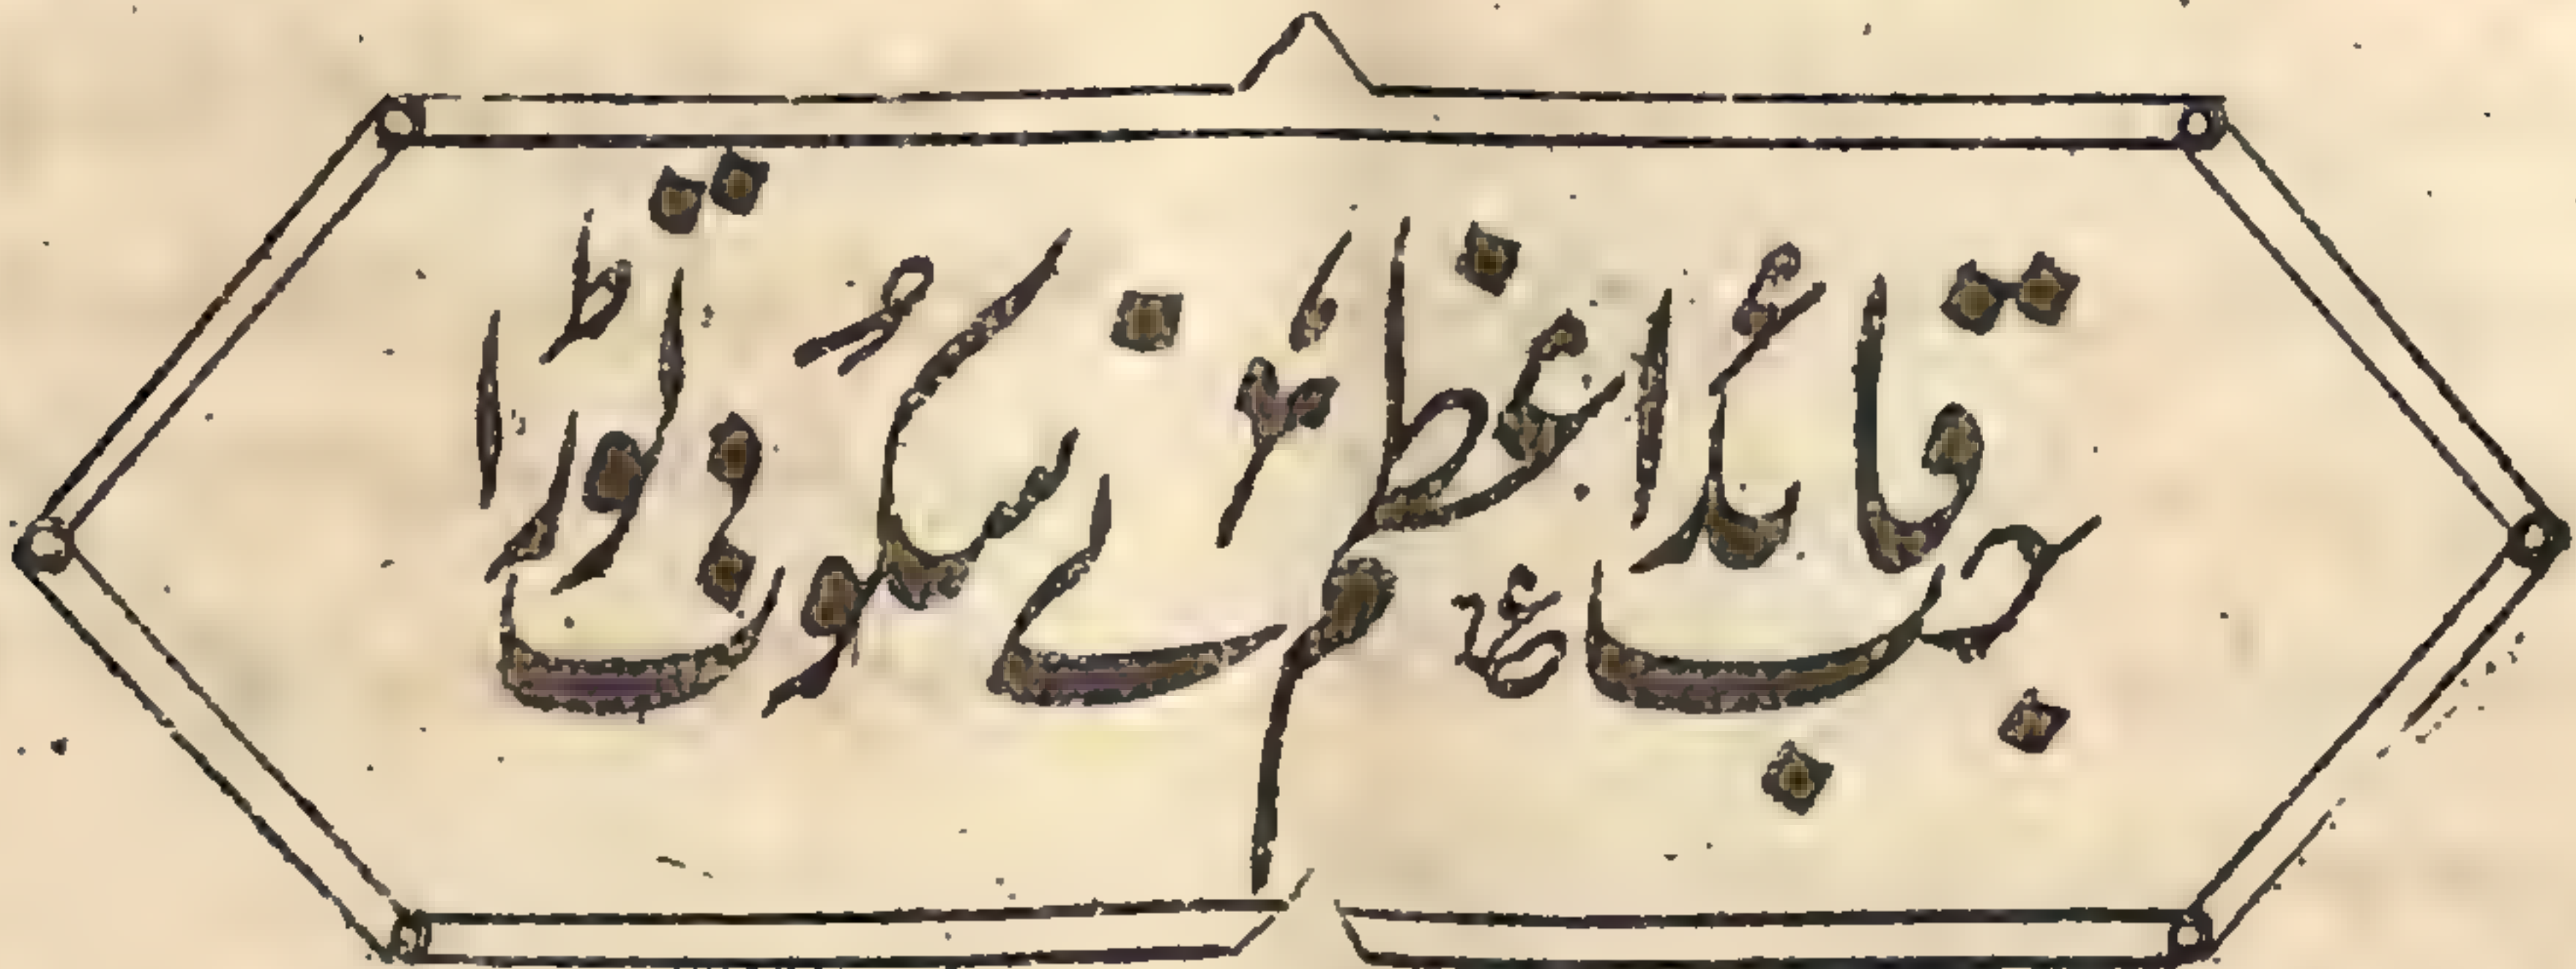 جب قائد اعظم نے سکوت توڑا